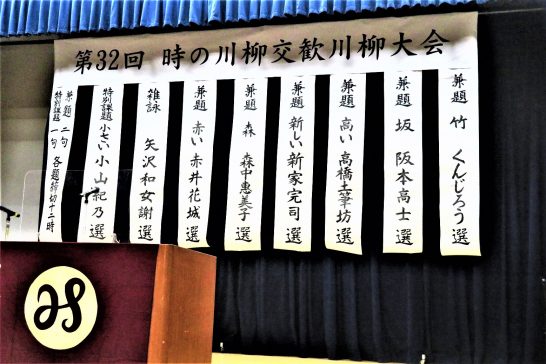 第32回 時の川柳交歓川柳大会
兼題 竹 くんじろう 選
兼題 坂 阪本高士 選
兼題 高い 高橋土筆坊 選
兼題 新しい 新家完司 選
兼題 森 森中惠美子 選
兼題 赤い 赤井花城 選
雑詠 矢沢和女謝 選
特別課題 小さい 小山紀乃 選
兼題 二句 各題締切十二時
特別課題 一句